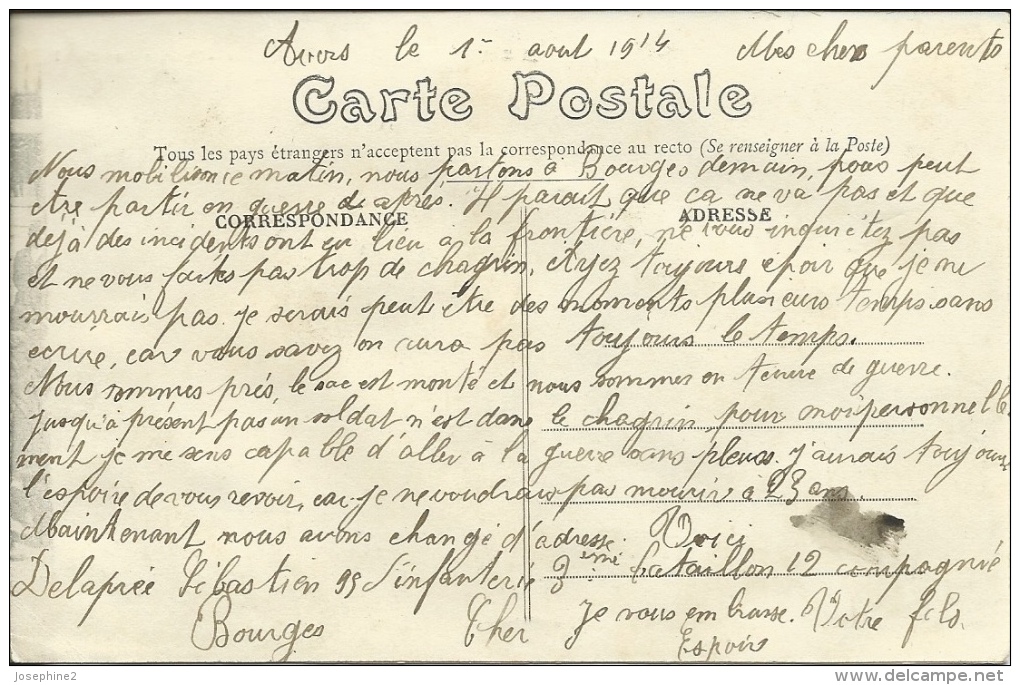 Avors le 1er aout 1914 Mes chers parents
Carte Postale
Tous les pays étrangers n'acceptent pas la correspondance au recto (Se renseigner à la Poste)
Nous mobilison ce matin, nous partons à Bourges demain, pour peut
etre partir en guerre d'après. Il parait que ca ne va pas et que
CORRESPONDANCE ADRESSE
déjà des incidents ont eu lieu à la frontière, ne vous inquiétez pas
et ne vous faites pas trop de chagrin, ayez toujours espoir que je ne
mourrais pas. je serais peut être des moments plusieurs temps sans
ecrire, car vous savez on aura pas toujours le temps.
Nous sommes près, le sac est monté et nous sommes en tenue de guerre.
Jusqu'à présent pas un soldat n'est dans le chagrin, pour moi personnelle
ment je me sens capable d'aller à la guerre sans pleurs. j'aurais toujours
l'espoire de vous revoir, car je ne voudrais pas mourir a 23 ans.
Maintenant nous avons changé d'adresse. Voici
Delaprée Sébastien 95 d'infanterie 3eme bataillon 12 compagnie
Bourges Cher Je vous embrasse. Votre fils.
Espoir
Josephine2
delcampe.net